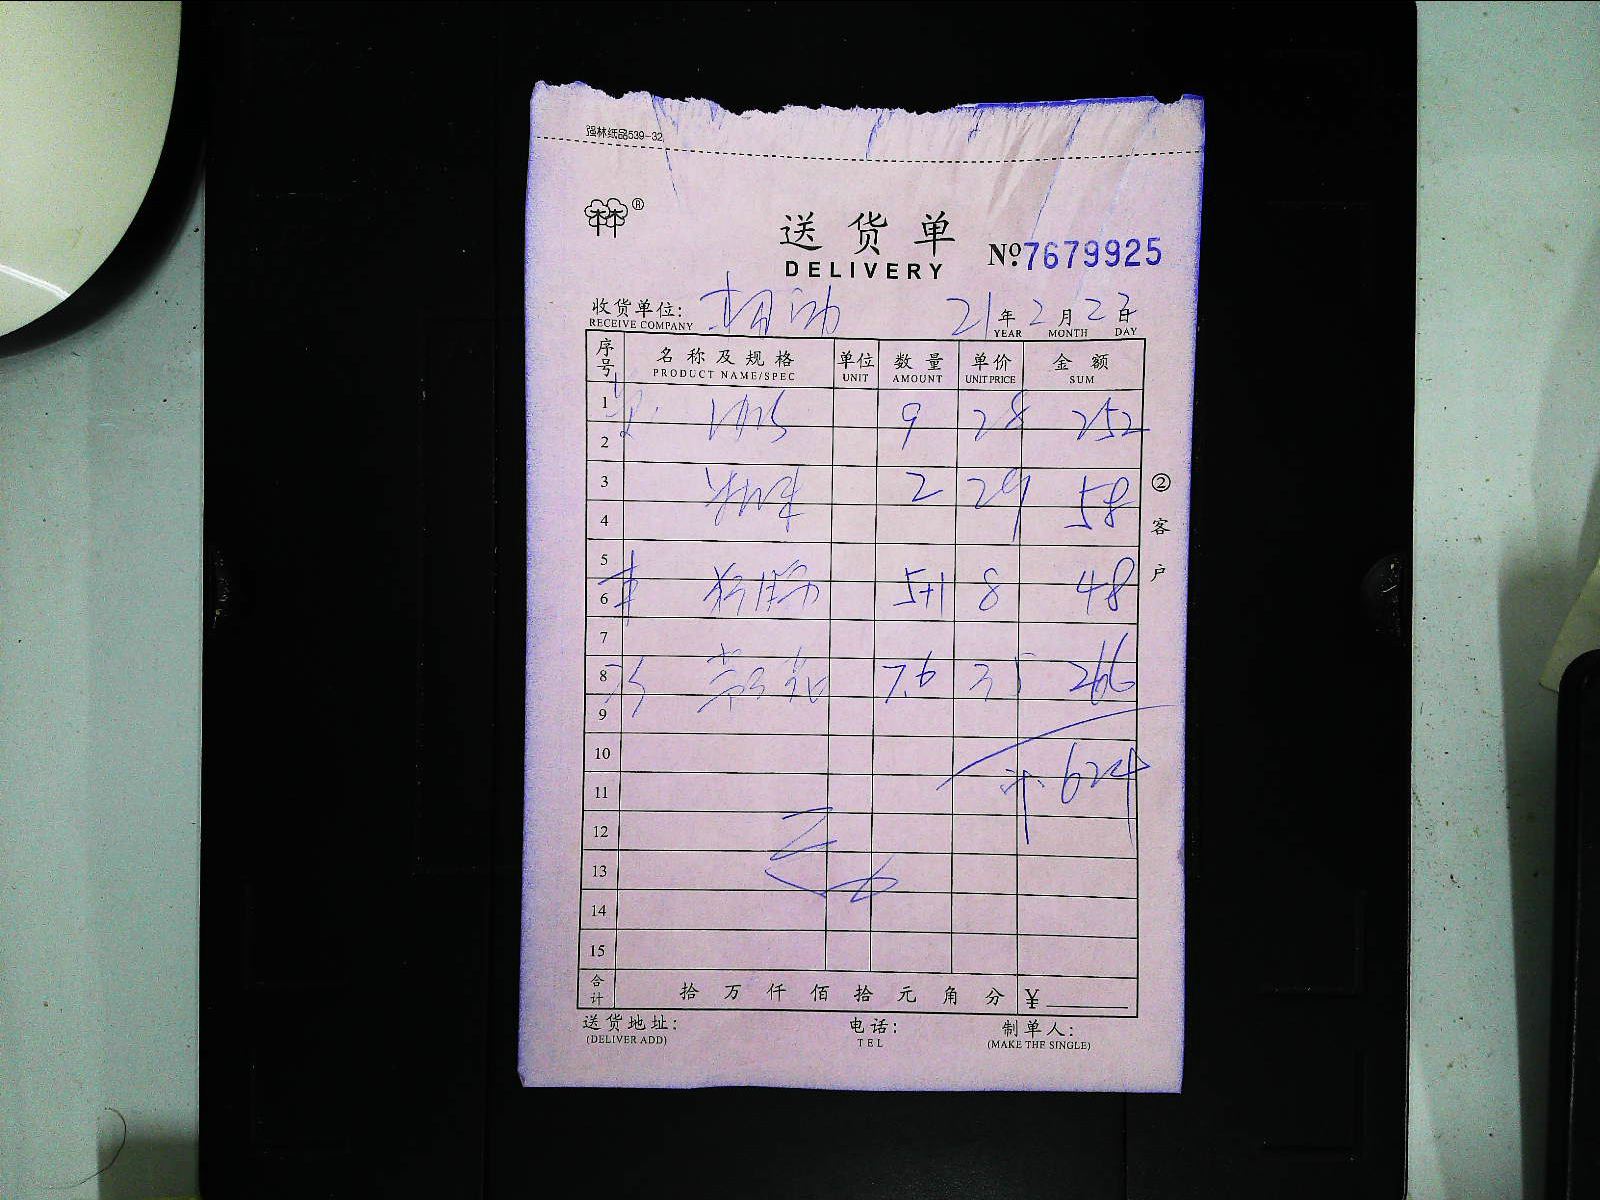 强林纸品539-32
林®
送货单
DELIVERY
№7679925
收货单位: 21年2月22日
RECEIVE COMPANY YEAR MONTH DAY
序号 名称及规格 单位 数量 单价 金额
PRODUCT NAME/SPEC UNIT AMOUNT UNIT PRICE SUM
1 9 28 252
2
3 2 29 58
4
5
6 5+1 8 48
7
8 7.6 35 266
9
10
11 624
12
13
14
15
合计 拾万仟佰拾元角分 ¥
②客户
送货地址: 电话: 制单人:
(DELIVER ADD) TEL (MAKE THE SINGLE)